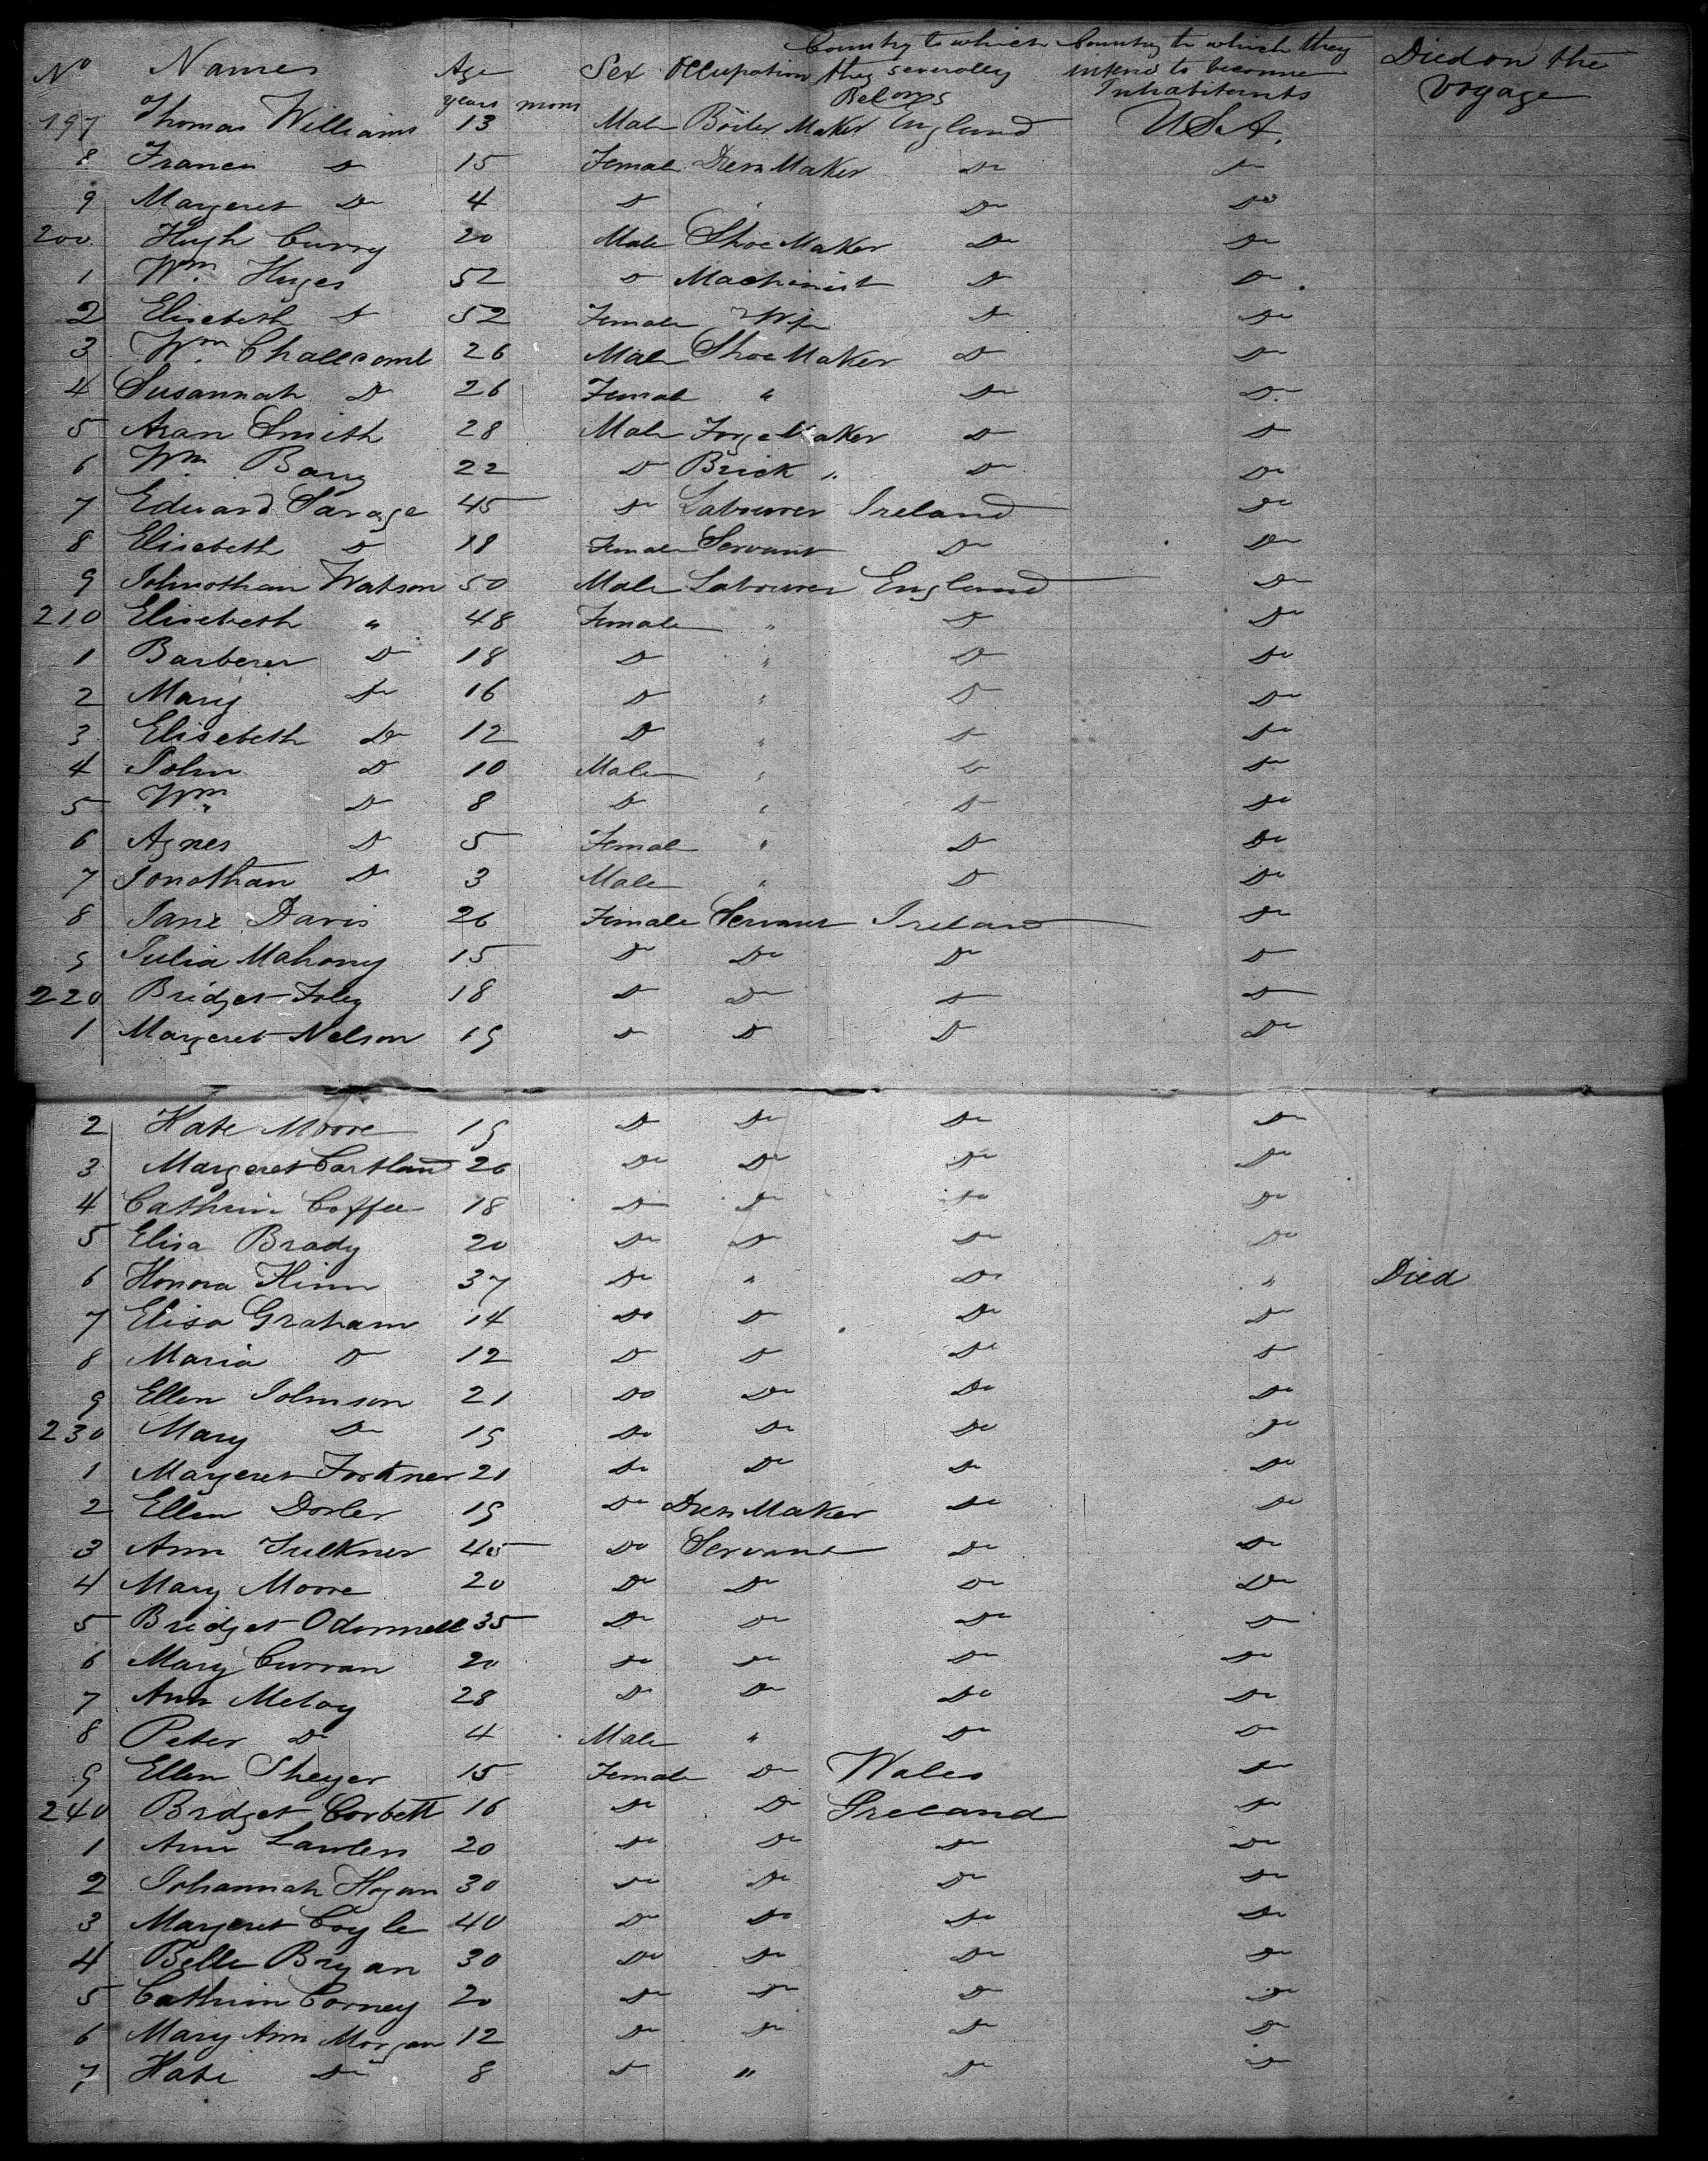 No Names Age years mons Sex Occupation Country to which they severally Belong Country to which they intend to become Inhabitants Died on the voyage
197 Thomas Williams 13 Male Boiler Maker England USA.
8 Frances Do 15 Female Dress Maker Do Do
9 Margeret Do 4 Do Do Do
200 Hugh Curry 20 Male Shoe Maker Do Do
1 Wm. Huges 52 Do Machinist Do Do
2 Elisebeth Do 52 Female Wife Do Do
3 Wm. Challscomb 26 Male Shoe Maker Do Do
4 Susannah Do 26 Female " Do Do
5 Aran Smith 28 Male Forge Maker Do Do
6 Wm. 22 Do Brick " Do Do
7 Edward Savage 45 Do Labourer Ireland Do
8 Elisebeth Do 18 Female Servant Do Do
9 Johnothan Watson 50 Male Labourer England Do
210 Elisebeth " 48 Female " Do Do
1 Barberer Do 18 Do " Do Do
2 Mary Do 16 Do " Do Do
3 Elisebeth Do 12 Do " Do Do
4 John Do 10 Male " Do Do
5 Wm. Do 8 Do " Do Do
6 Agnes Do 5 Female " Do Do
7 Jonathan Do 3 Male " Do Do
8 Jane Davis 26 Female Servant Ireland Do
9 Julia Mahony 15 Do Do Do Do
220 Bridget Foley 18 Do Do Do Do
1 Margeret Nelson 19 Do Do Do Do
2 Kate Moore 19 Do Do Do Do
3 Margeret Cartland 26 Do Do Do Do
4 Cathrin Coffee 18 Do Do Do Do
5 Elisa Brady 20 Do Do Do Do
6 Honora Kinn 37 Do " Do " Died
7 Elisa Graham 14 Do Do Do Do
8 Maria Do 12 Do Do Do Do
9 Ellen Johnson 21 Do Do Do Do
230 Mary Do 19 Do Do Do Do
1 Margeret Forkner 21 Do Do Do Do
2 Ellen Dorler 19 Do Dress Maker Do Do
3 Ann Fulkner 45 Do Servant Do Do
4 Mary Moore 20 Do Do Do Do
5 Bridget Odonnell 35 Do Do Do Do
6 Mary Curran 20 Do Do Do Do
7 Ann Meloy 28 Do Do Do Do
8 Peter Do 4 Male " Do Do
9 Ellen Sheyer 15 Female Do Wales Do
240 Bridget Corbett 16 Do Do Ireland Do
1 Ann Lawless 20 Do Do Do Do
2 Johannah Hogan 30 Do Do Do Do
3 Margeret Coyle 40 Do Do Do Do
4 Belle Bryan 30 Do Do Do Do
5 Cathrin Corney 20 Do Do Do Do
6 Mary Ann Morgan 12 Do Do Do Do
7 Kate Do 8 Do " Do Do